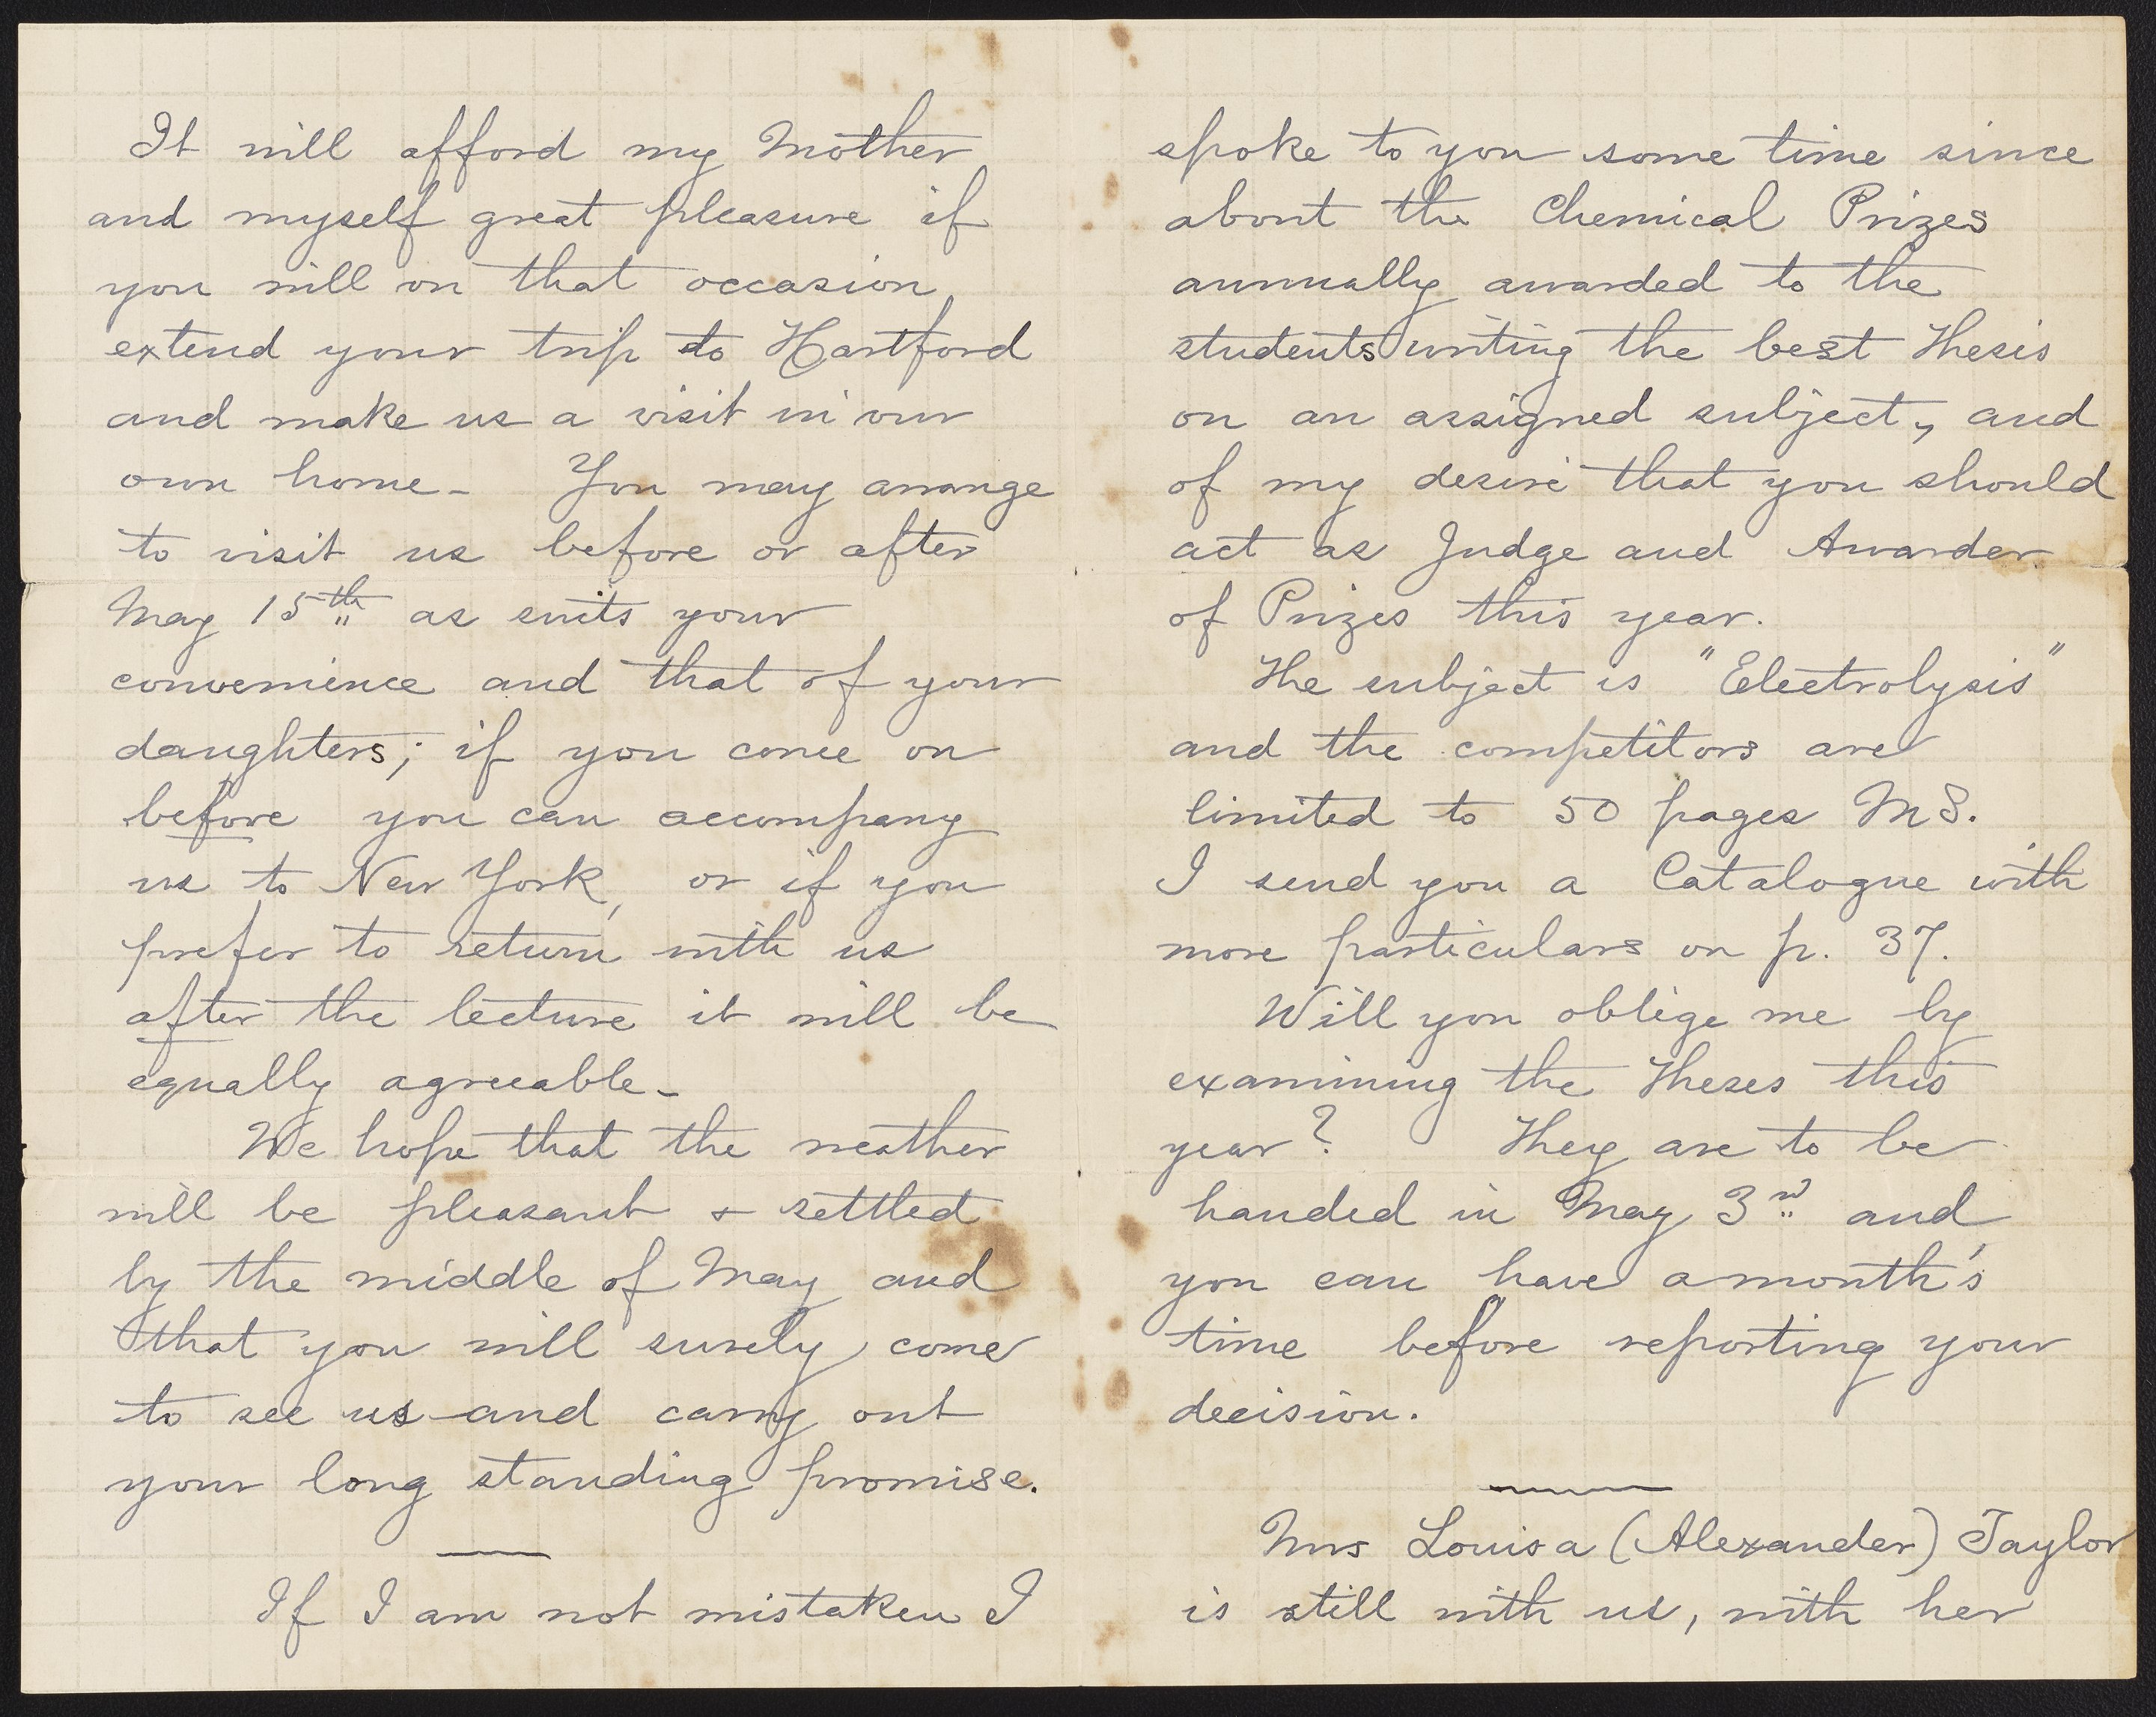 It will afford my Mother
and myself great pleasure if
you will on that occasion
extend your trip to Hartford
and make us a visit in our
own home - You may arrange
to visit us before or after
May 15th as suits your
convenience and that of your
daughters; if you come on
before you can accompany
us to New York, or if you
prefer to return with us
after the lecture it will be
equally agreeable -
We hope that the weather
will be pleasant & settled
by the middle of May and
that you will surely come
to see us and carry out
your long standing promise.
If I am not mistaken I
spoke to you some time since
about the Chemical Prizes
annually awarded to the
students writing the best Thesis
on an assigned subject, and
of my desire that you should
act as Judge and Awarder
of Prizes this year.
The subject is "Electrolysis"
and the competitors are
limited to 50 pages MS.
I send you a Catalogue with
more particulars on p. 37.
Will you oblige me by
examining the Theses this
year? They are to be
handed in May 3rd and
you can have a month's
time before reporting your
decision.
Mrs Louisa (Alexander) Taylor
is still with us, with her